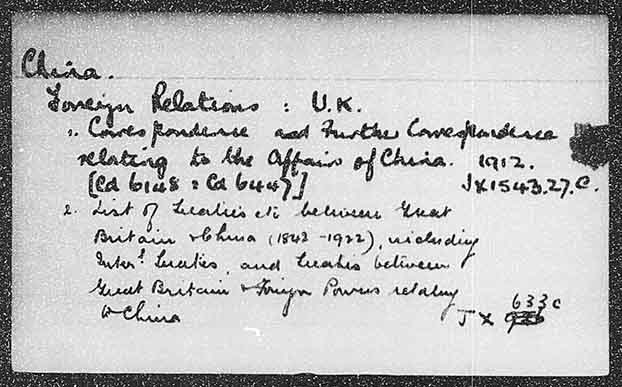 China.
Foreign Relations : U.K.
1. Correspondence and Further Correspondence
relating to the Affairs of China. 1912.
[Cd 6148 : Cd 6447]
JX1543.27.C.
2. List of Treaties etc between Great
Britain & China (1842-1922), including
Inter.l Treaties, and Treaties between
Great Britain & Foreign Powers relating
to China
JX 633c